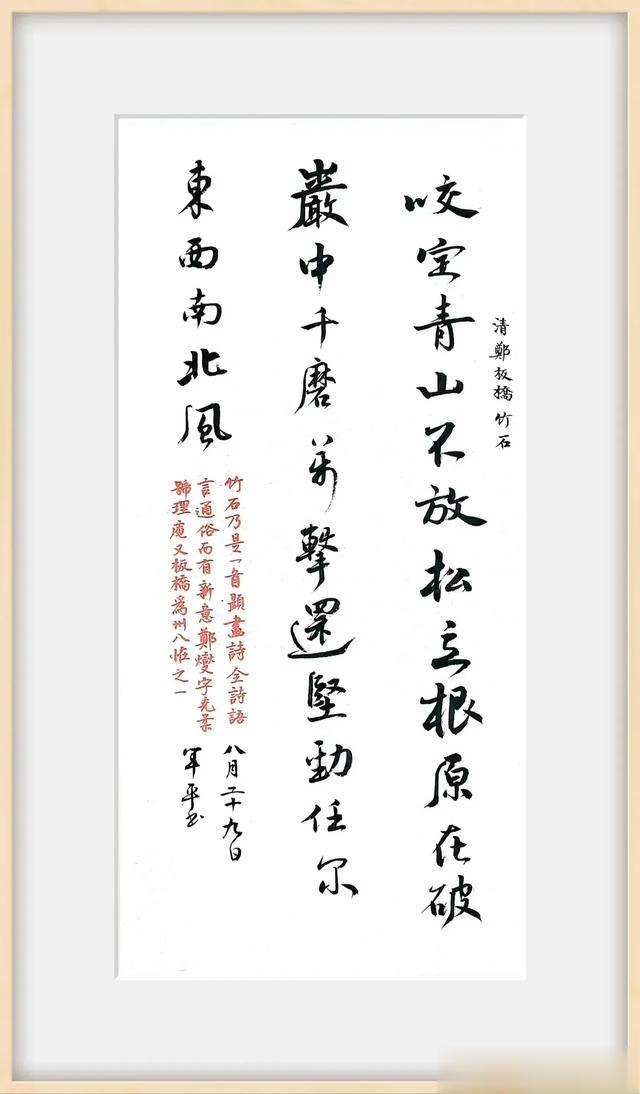 清鄭板橋竹石
咬定青山不放松立根原在破
巖中千磨萬擊還堅勁任尔
東西南北風
竹石乃是一首題畫詩全詩語
言通俗而有新意鄭燮字克柔
號理庵又板橋爲州八恠之一
八月二十九日
軍平书